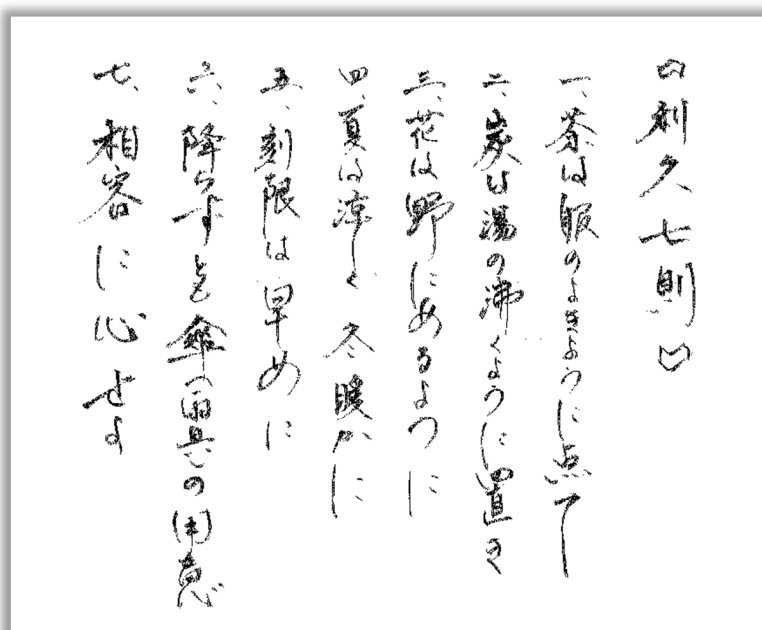 ♡利久七則♡
一、茶は服のよきように点て
二、炭は湯の沸くように置き
三、花は野にあるように
四、夏は涼しく冬暖かに
五、刻限は早めに
六、降らずとも傘の用意
七、相客に心せよ